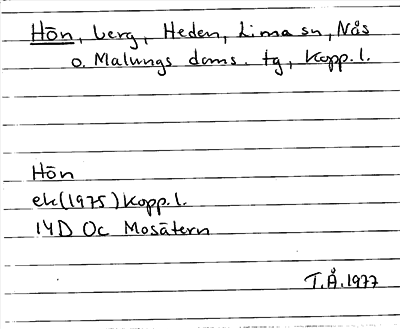 Hōn, berg, Heden, Lima sn, Nås
o. Malungs doms. tg, Kopp. l.
Hōn
ek (1975) Kopp. l.
14D Oc Mosätern
T.Å. 1977